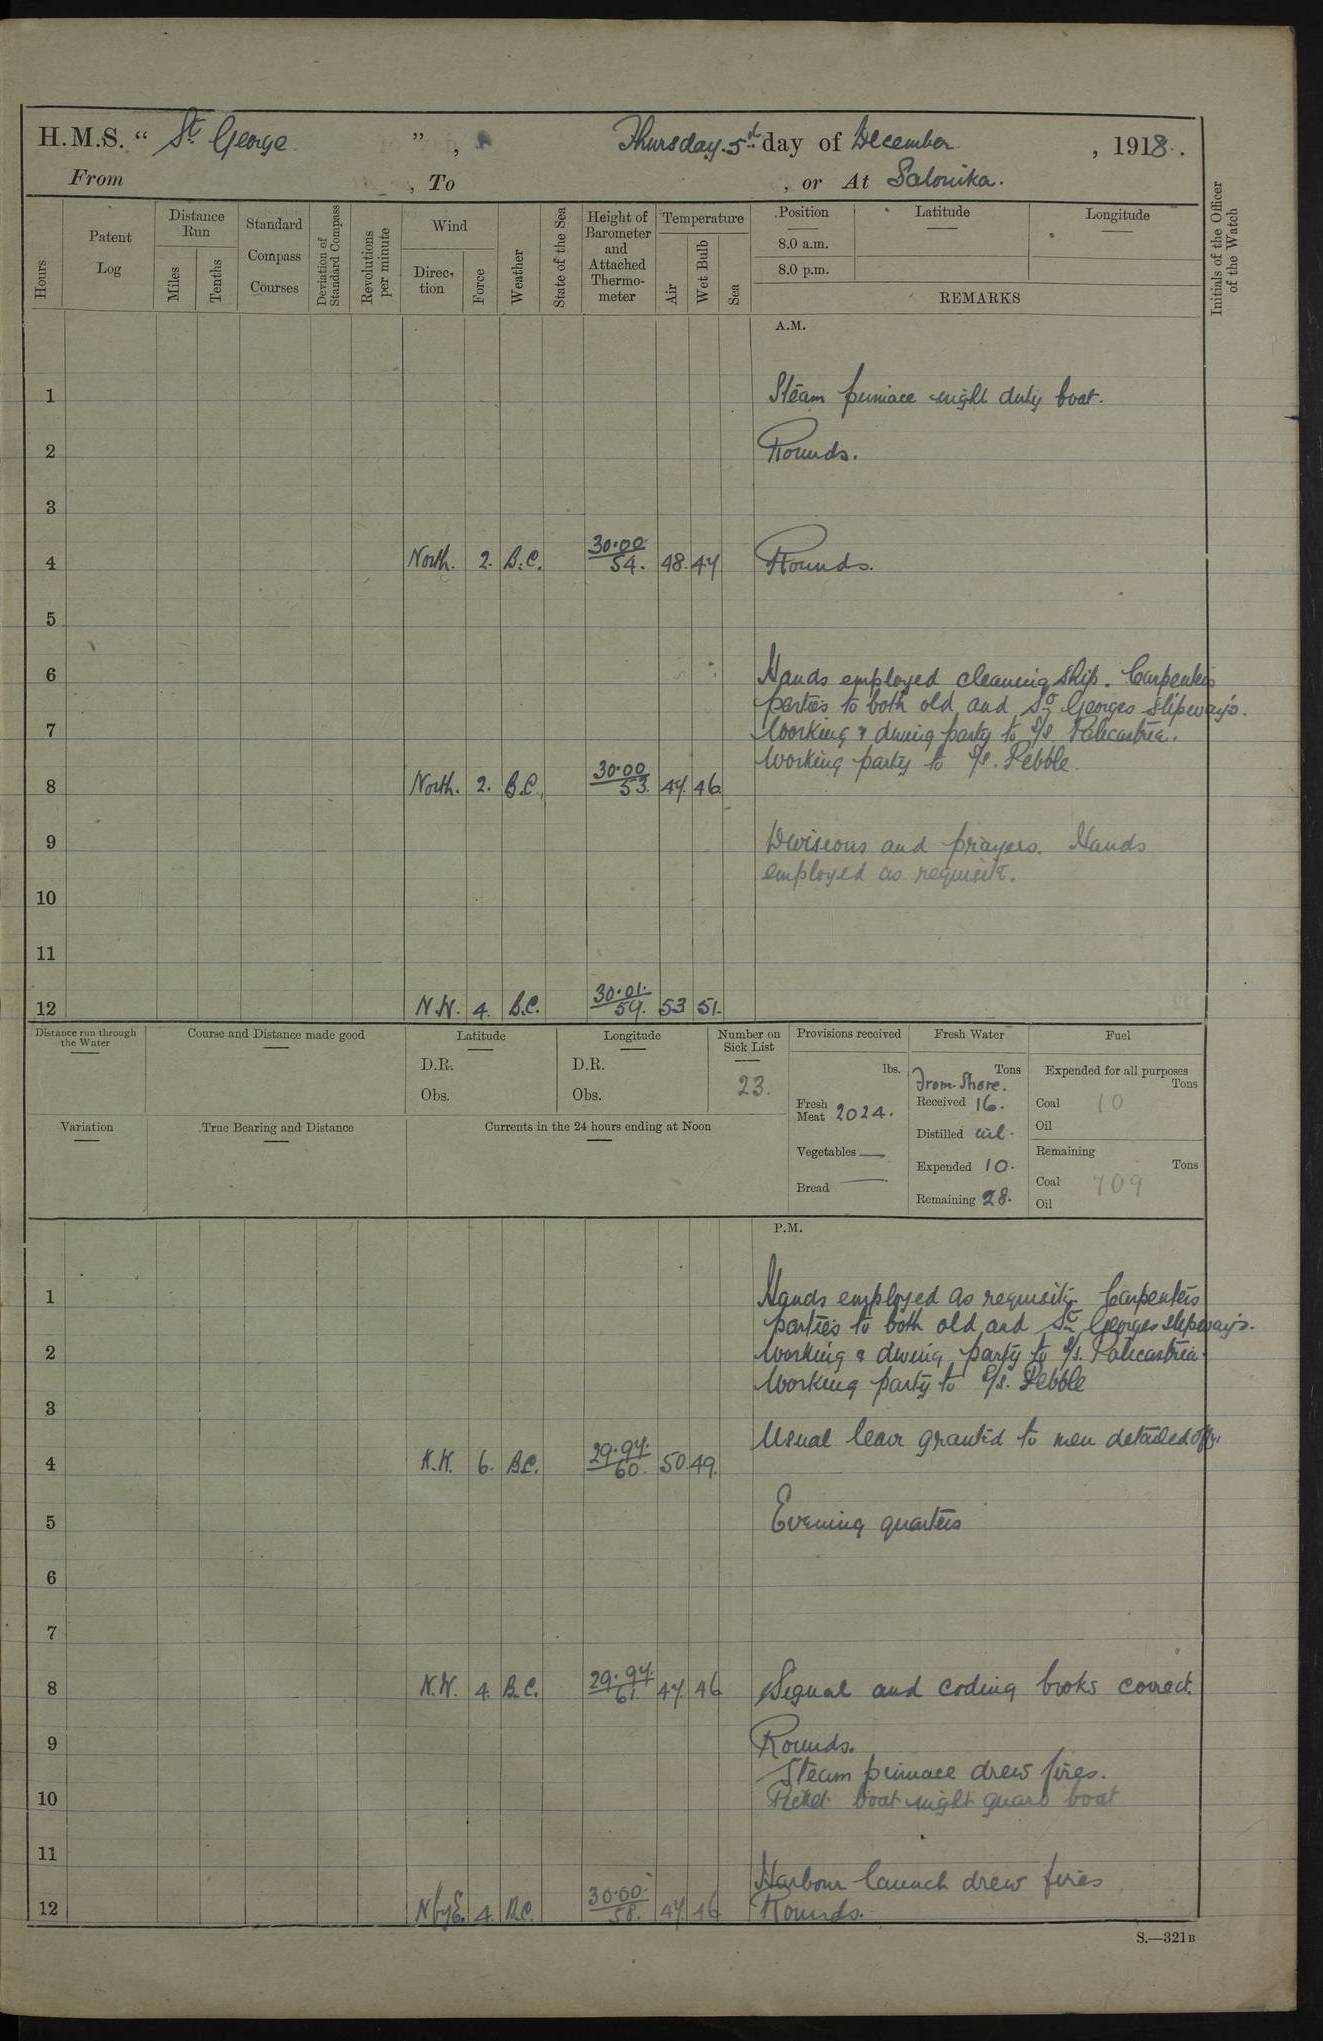 H.M.S. “ St. George ” , Thursday 5th day of December , 1918.
From , To , or At Salonika.
Hours
Patent Log
Distance Run
Miles
Tenths
Standard Compass Courses
Deviation of Standard Compass
Revolutions per minute
Wind
Direction
Force
Weather
State of the Sea
Height of Barometer and Attached Thermometer
Temperature
Air
Wet Bulb
Sea
Position
8.0 a.m.
8.0 p.m.
Latitude
Longitude
REMARKS
Initials of the Officer of the Watch
A.M.
1 Steam pinnace night duty boat.
2 Rounds.
3
4 North. 2. B.C. 30.00/54. 48. 47 Rounds.
5
6 Hands employed cleaning ship. Carpenters
parties to both old and St Georges slipways.
7 Working & diving party to S/S. Palicastria.
Working party to S/S. Pebble.
8 North. 2. B.C. 30.00/53. 47. 46
9 Divisions and prayers. Hands
employed as requisite.
10
11
12 N.W. 4. B.C. 30.01/57. 53 51.
Distance run through the Water
Course and Distance made good
Latitude
D.R.
Obs.
Longitude
D.R.
Obs.
Number on Sick List
23.
Provisions received
lbs.
Fresh Meat 2024.
Vegetables —
Bread —
Fresh Water
Tons
From Shore.
Received 16.
Distilled nil.
Expended 10.
Remaining 28.
Fuel
Expended for all purposes
Tons
Coal 10
Oil
Remaining
Tons
Coal 709
Oil
Variation
True Bearing and Distance
Currents in the 24 hours ending at Noon
P.M.
1 Hands employed as requisite. Carpenters
parties to both old and St Georges slipways.
2 Working & diving party to S/S. Palicastria.
Working party to S/S. Pebble
3
Usual leave granted to men detailed off.
4 N.W. 6. B.C. 29.97./60. 50. 49.
5 Evening quarters
6
7
8 N.W. 4. B.C. 29.97./61. 47. 46 Signal and coding books correct.
9 Rounds.
Steam pinnace drew fires.
10 Picket boat night guard boat
11
Harbour launch drew fires
12 N by E. 4. B.C. 30.00./58. 47. 46 Rounds.
S.—321B